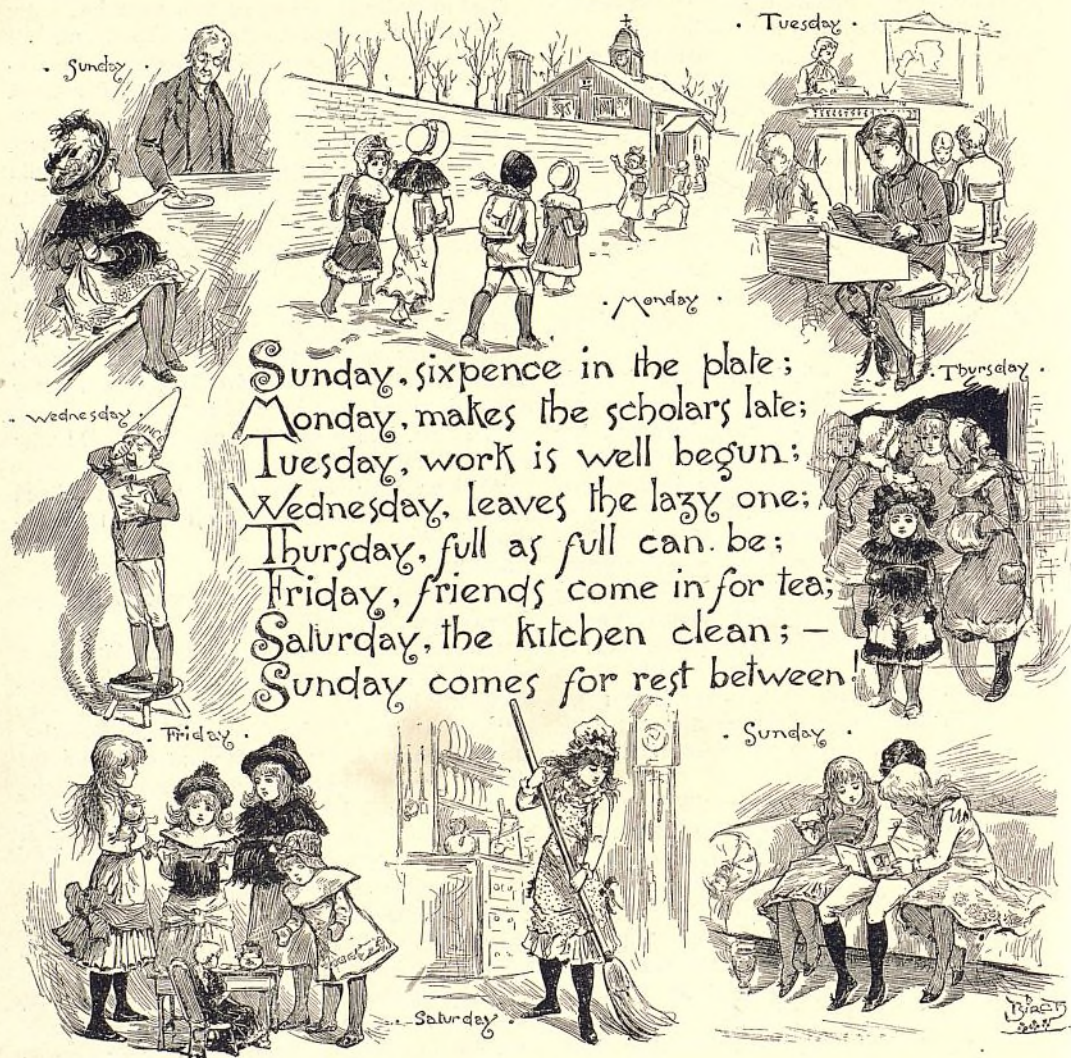 · Sunday ·
· Monday ·
· Tuesday ·
Sunday, sixpence in the plate;
Monday, makes the scholars late;
Tuesday, work is well begun;
Wednesday, leaves the lazy one;
Thursday, full as full can be;
Friday, friends come in for tea;
Saturday, the kitchen clean; —
Sunday comes for rest between!
· Wednesday ·
· Thursday ·
· Friday ·
· Saturday ·
· Sunday ·